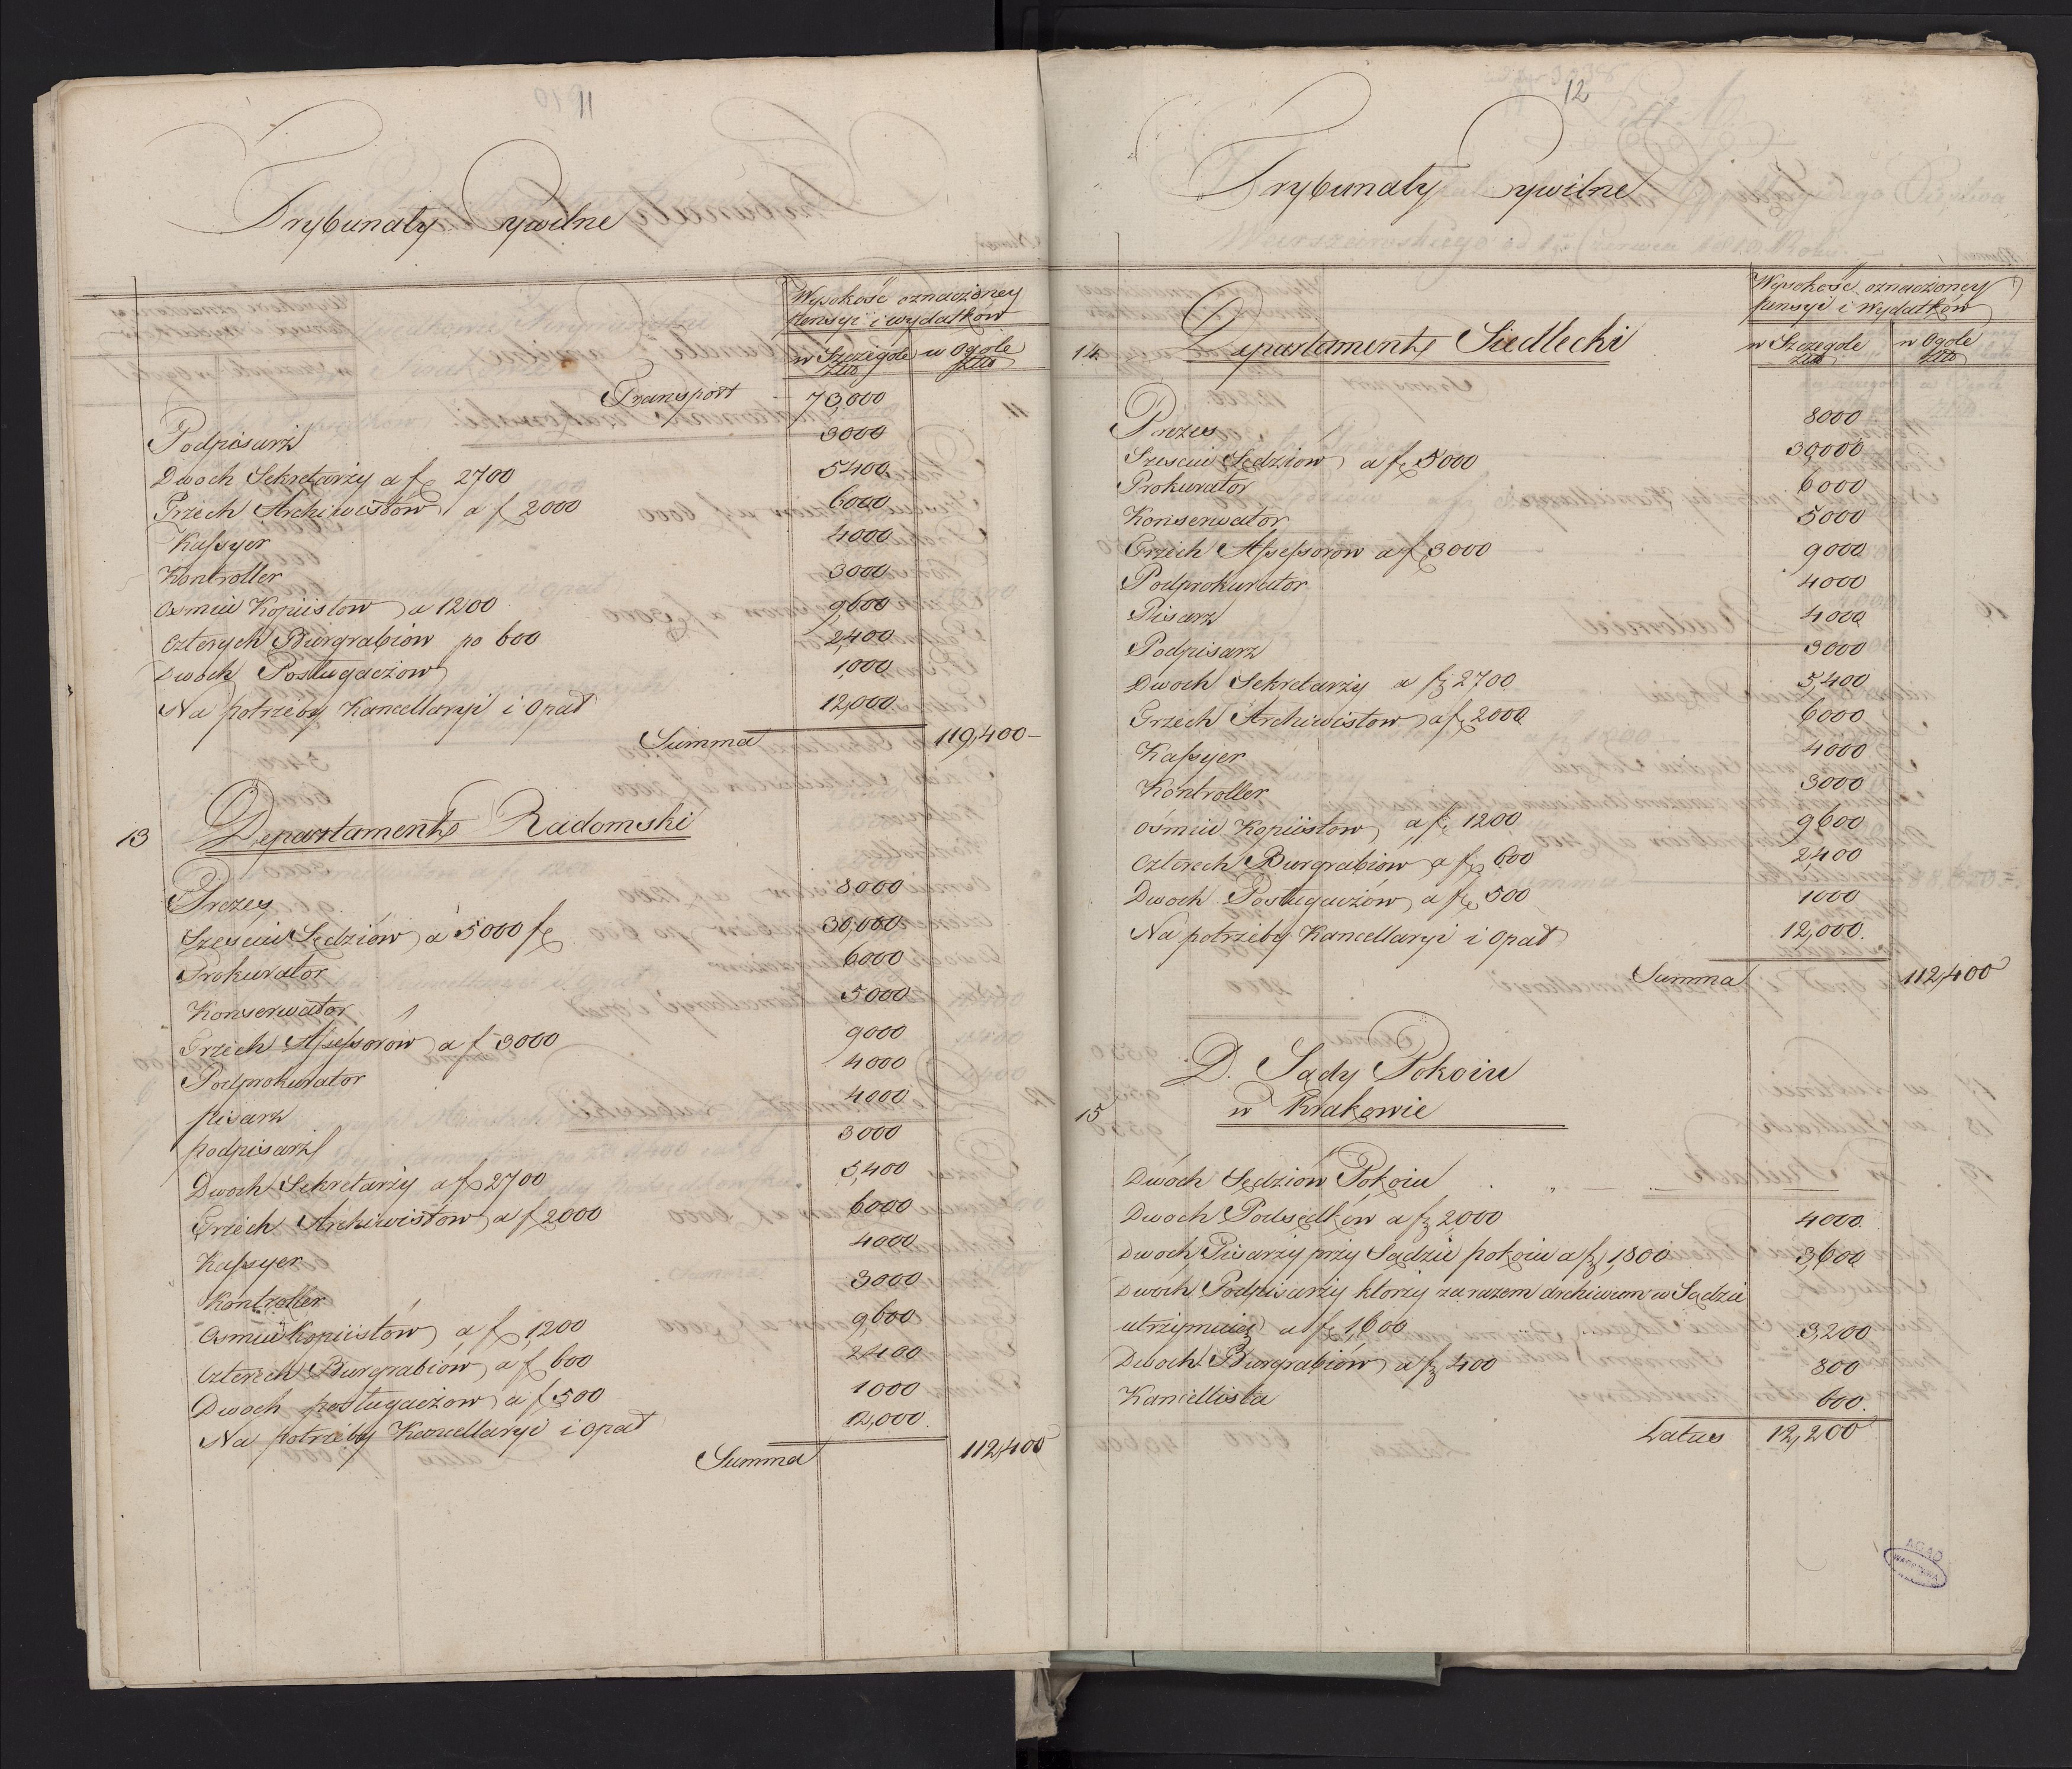 11
Trybunały Cywilne
Wysokość oznaczoney
pensyi i wydatków
w Szczegole w Ogole
Złto Złto
Transport 73,000
Podpisarz 3000
Dwoch Sekretarzy a f 2700 5400
Trzech Archiwistów a f 2000 6000
Kassyer 4000
Kontroller 3000
Osmiu Kopiistow a 1200 9600
Czterych Burgrabiow po 600 2,400
Dwoch Posługaczow 1,000
Na potrzeby Kancellaryi i Opał 12,000
Summa 119,400
13 Departament Radomski
Prezes 8000
Szesciu Sędziów a 5000 f 30,000
Prokurator 6000
Konserwator 5000
Trzech Assessorów a f 3000 9000
Podprokurator 4000
pisarz 4000
podpisarz 3000
Dwoch Sekretarzy a f 2700 5,400
Trzech Archiwistow a f 2000 6000
Kassyer 4000
Kontroller 3000
Osmiu Kopiistów a f 1,200 9,600
Czterech Burgrabiów a f 600 2400
Dwoch posługaczow a f 500 1000
Na potrzeby Kancellaryi i opał 12,000.
Summa 112,400
12
Trybunały Cywilne
Wysokość oznaczoney
pensyi i wydatków
w Szczegole w Ogole
Złto Złto
14. Departament Siedlecki
Prezes 8000
Szesciu Sędziów a f 5000 30,000
Prokurator 6000
Konserwator 5000
Trzech Assessorow a f 3000 9000
Podprokurator 4000
Pisarz 4000
Podpisarz 3000
Dwoch Sekretarzy a f 2700 5,400
Trzech Archiwistow a f 2000 6000
Kassyer 4000
Kontroller 3000
Ośmiu Kopiistow a f 1200 9600
Czterech Burgrabiow a f 600 2,400
Dwoch Posługaczów a f 500 1000
Na potrzeby Kancellaryi i Opał 12,000.
Summa 112,400
D. Sądy Pokoiu
15 w Krakowie
Dwóch Sędziów Pokoiu
Dwoch Podsędków a f 2,000 4000
Dwoch Pisarzy przy Sądzie pokoiu a f 1,800 3,600
Dwoch Podpisarzy ktorzy zarazem archiwum w Sądzie
utrzymuią a f 1,600 3,200
Dwoch Burgrabiów a f 400 800
Kancellista 600.
Latus 12,200
AGAD
WARSZAWA